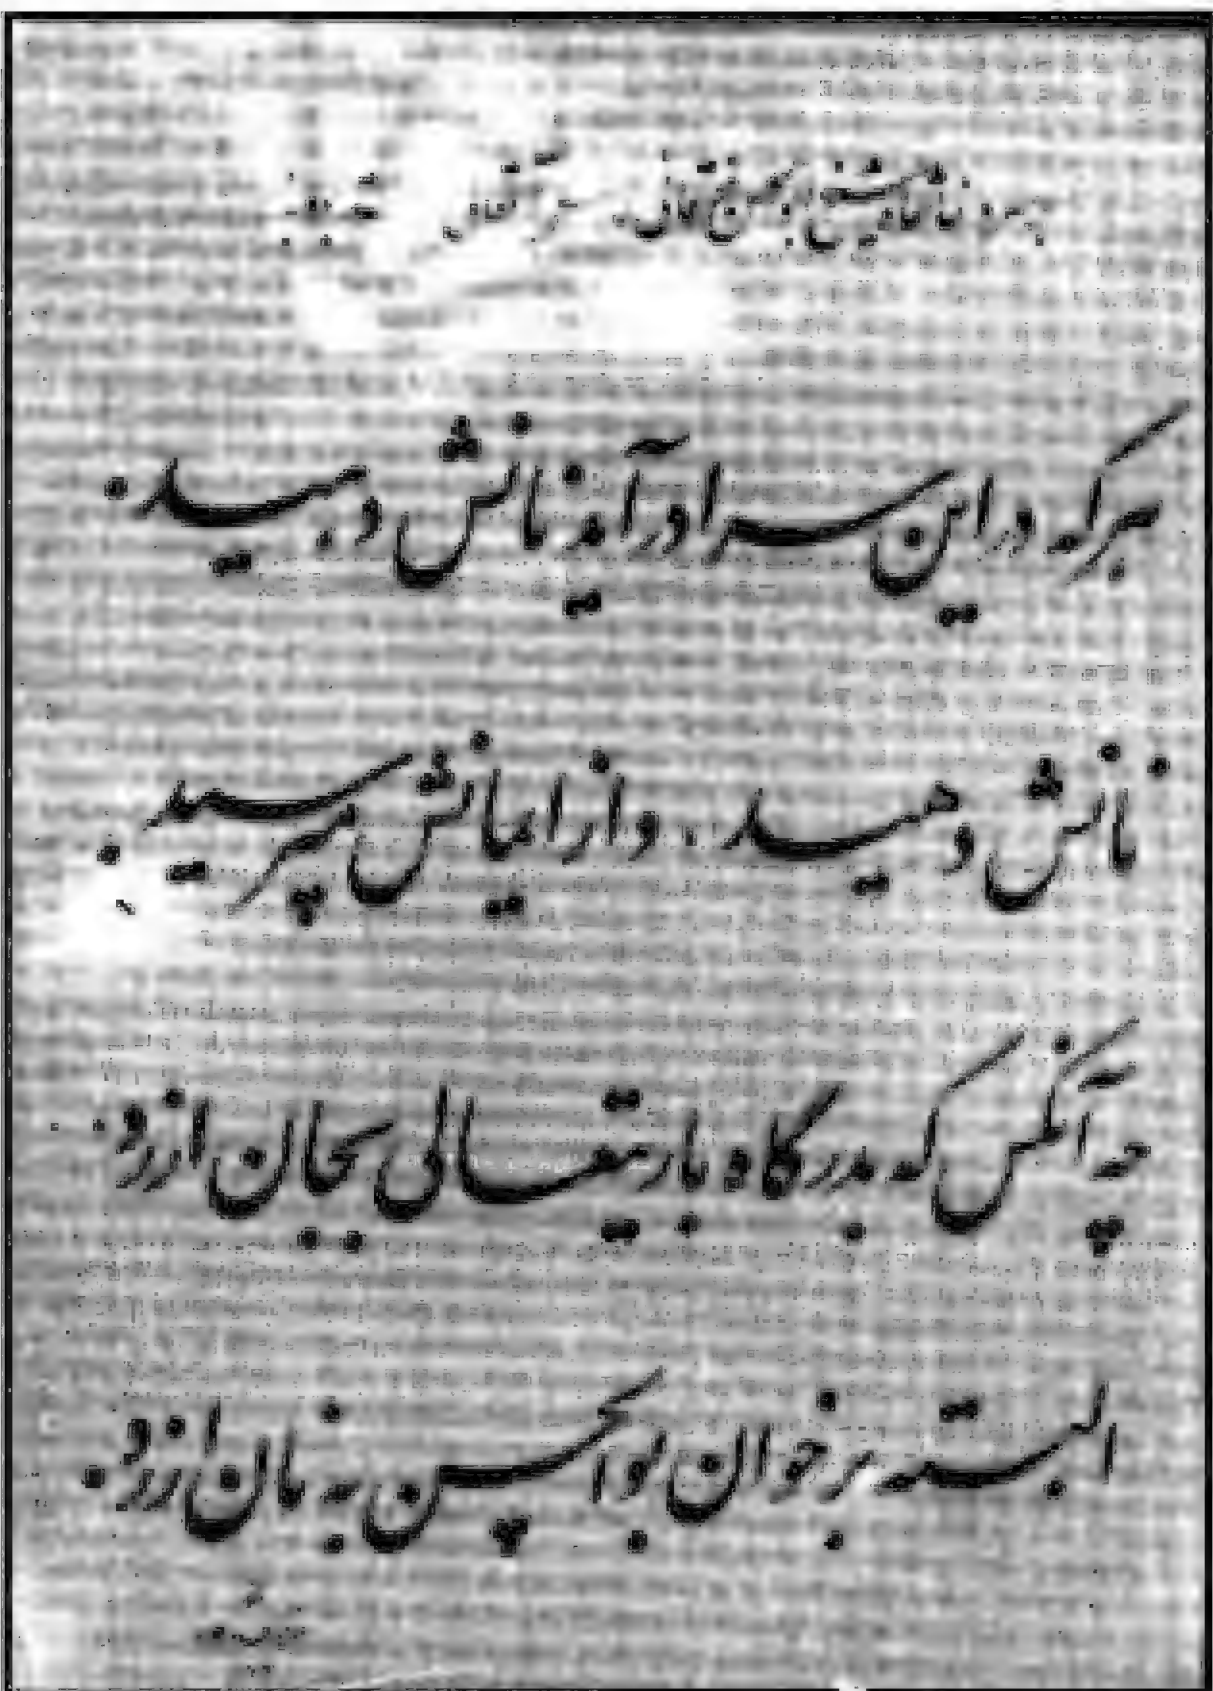 هر که در این سرا درآید نانش دهید
نانش دهید و از ایمانش مپرسید
چه آنکس که بدرگاه باریتعالی بجان ارزد
البته بر خوان بوالحسن به نان ارزد